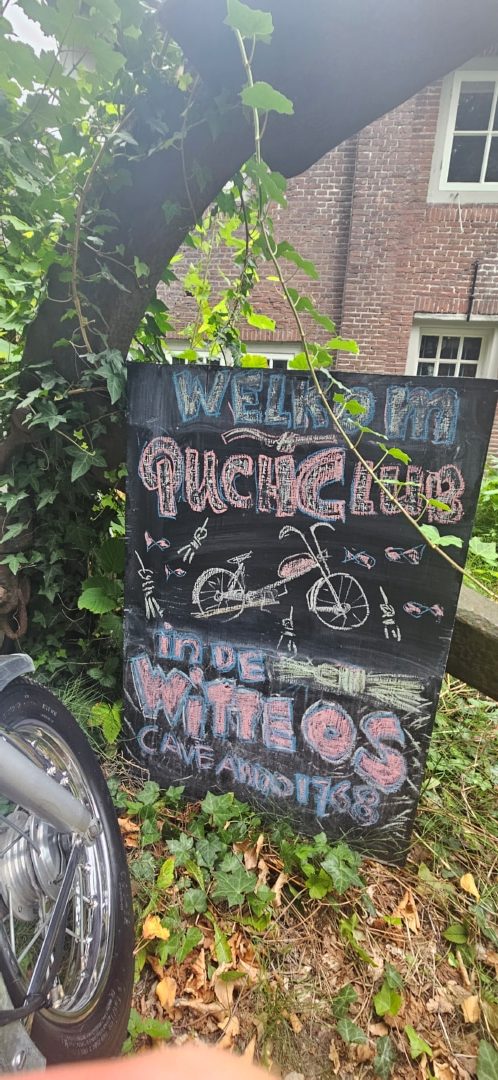 WELKOM
PUCH CLUB
in DE
WITTE OS
CAVE ANNO 1768